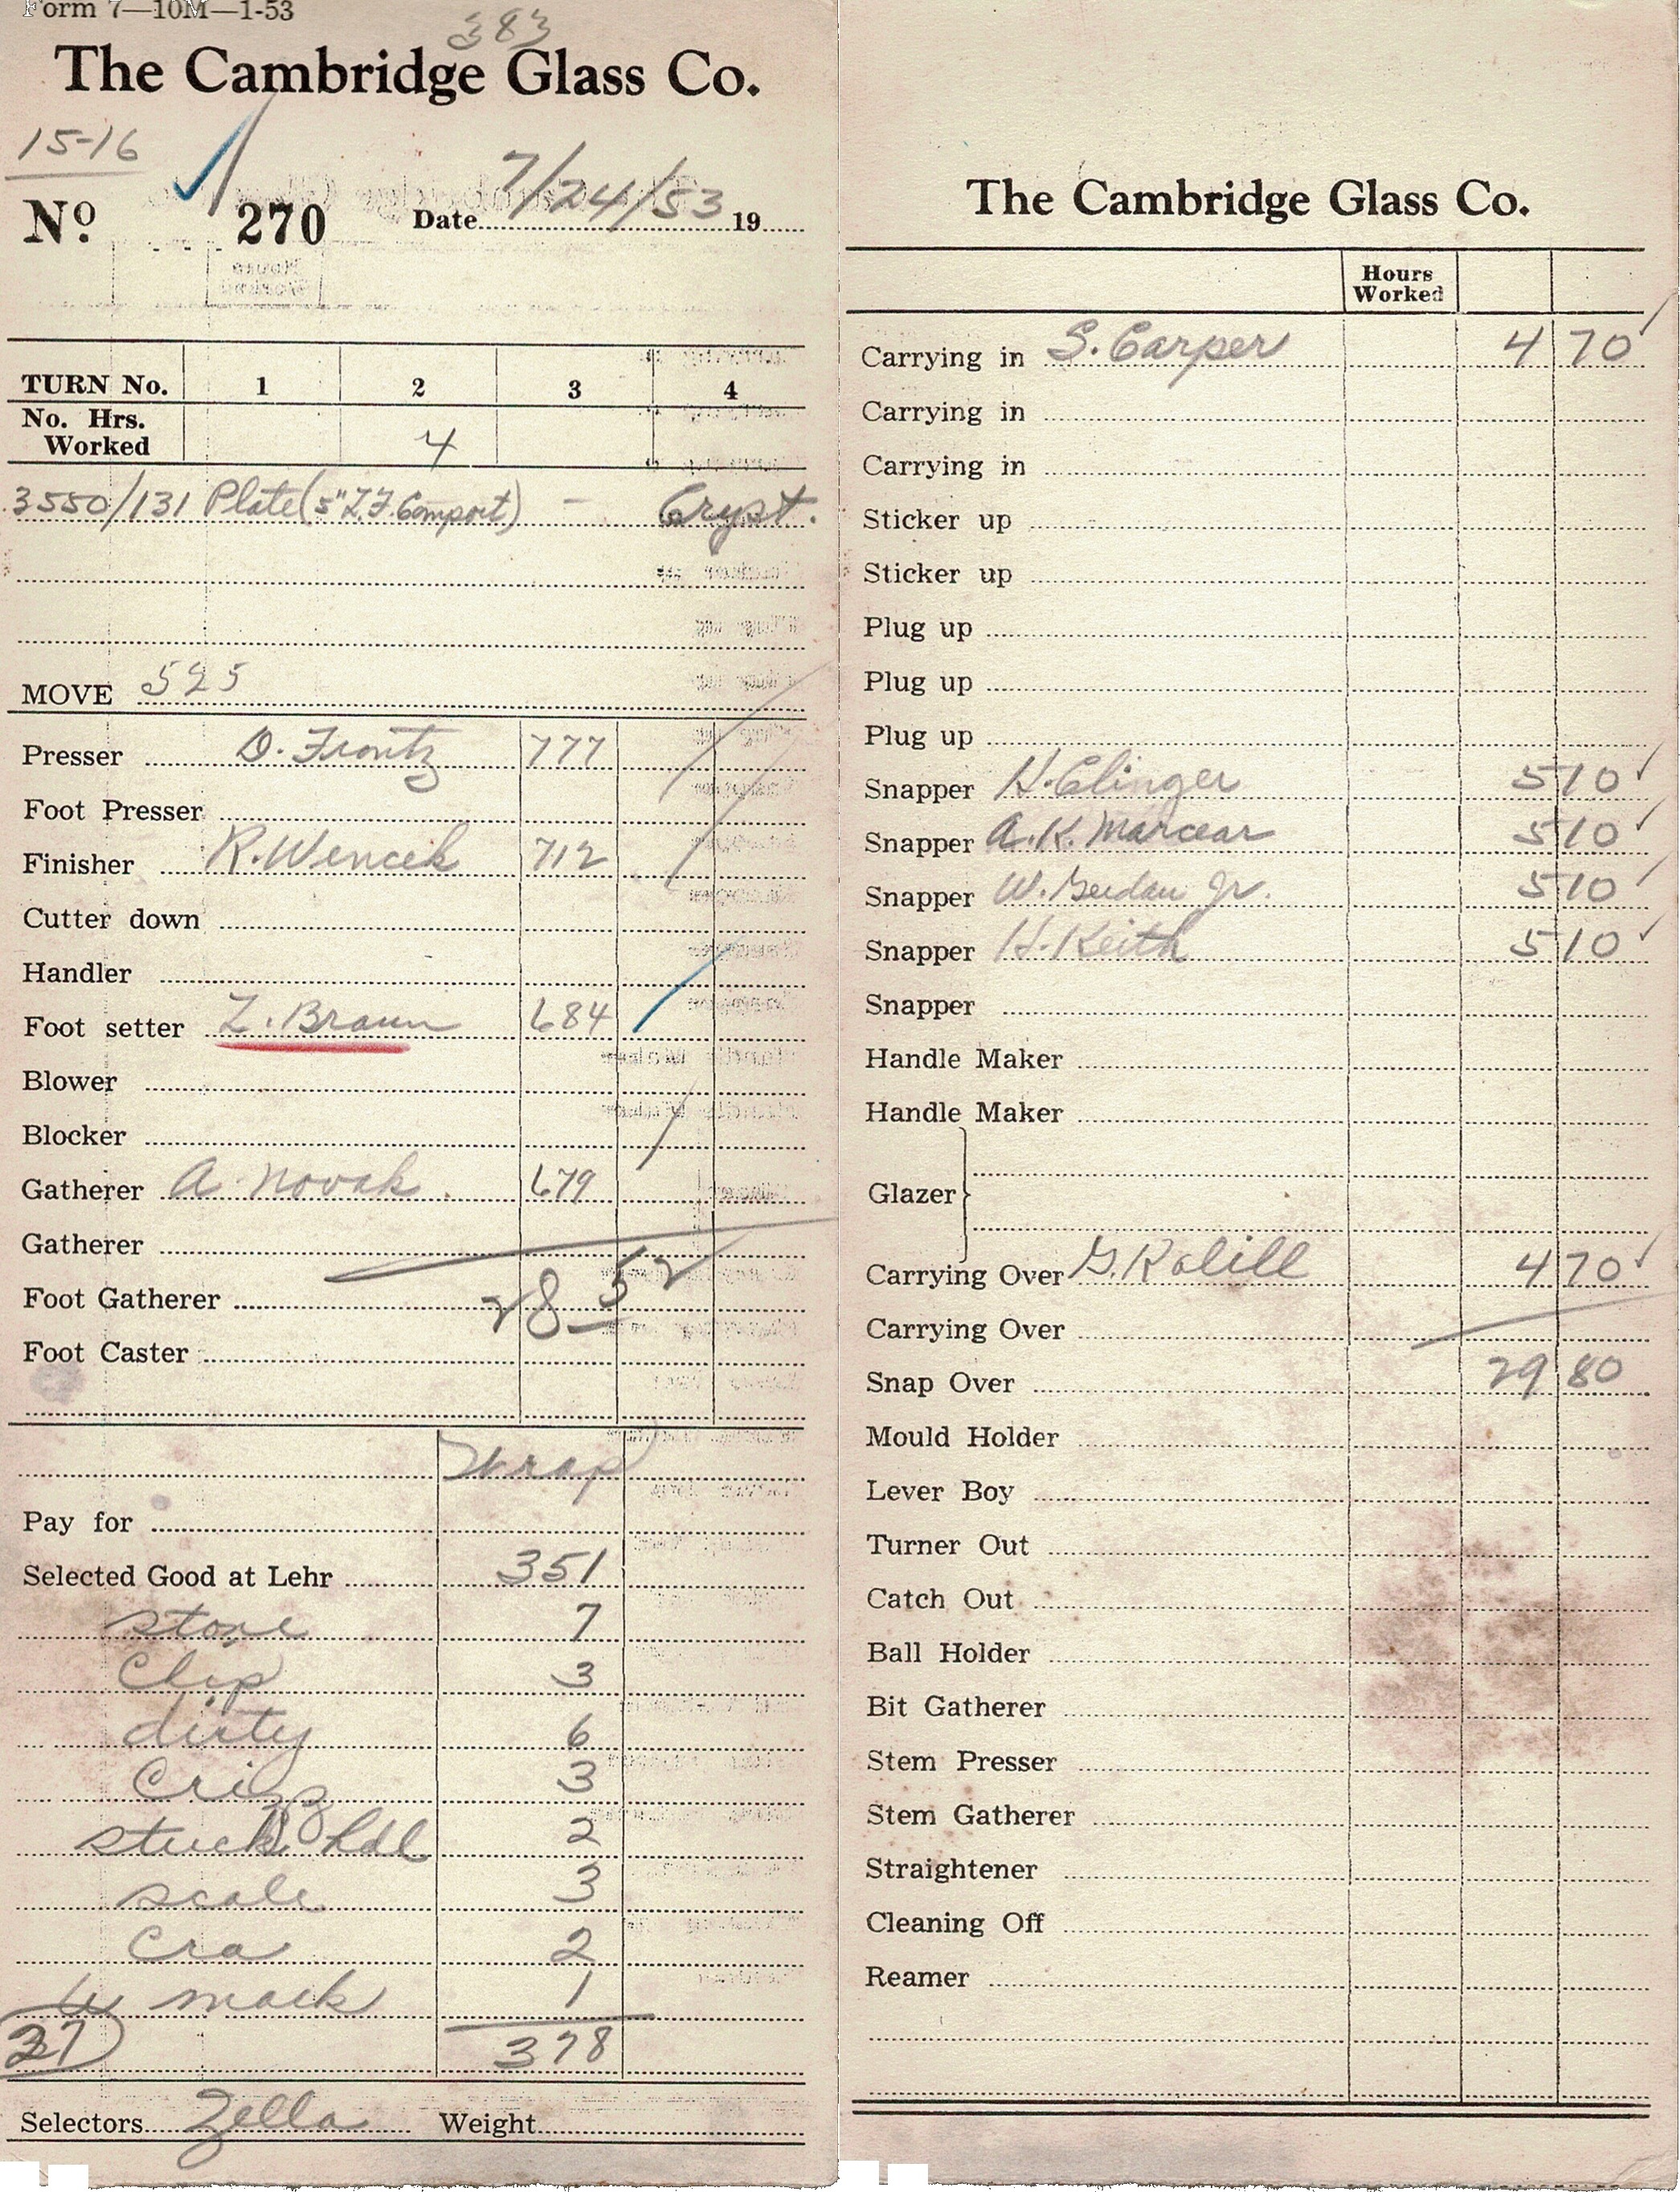 Form 7—10M—1-53
383
The Cambridge Glass Co.
15-16
No 270 Date 7/24/53 19
TURN No. 1 2 3 4
No. Hrs. Worked 4
3550/131 Plate (5" Z.F. Comport) — Cryst.
MOVE 525
Presser D. Frontz 777
Foot Presser
Finisher R. Wencek 712
Cutter down
Handler
Foot setter Z. Braun 684
Blower
Blocker
Gatherer A. Novak 679
Gatherer
28 52
Foot Gatherer
Foot Caster
Pay for
Selected Good at Lehr 351
stone 7
Chip 3
dirty 6
Crizz 3
stuck hdl 2
scale 3
Cra 2
mark 1
27 378
Selectors Zella Weight
The Cambridge Glass Co.
Hours Worked
Carrying in S. Carper 4 70
Carrying in
Carrying in
Sticker up
Sticker up
Plug up
Plug up
Plug up
Snapper H. Clinger 5 10
Snapper A. K. Marcear 5 10
Snapper W. Jr. 5 10
Snapper H. Keith 5 10
Snapper
Handle Maker
Handle Maker
Glazer
Carrying Over G. 4 70
Carrying Over
Snap Over 29 80
Mould Holder
Lever Boy
Turner Out
Catch Out
Ball Holder
Bit Gatherer
Stem Presser
Stem Gatherer
Straightener
Cleaning Off
Reamer